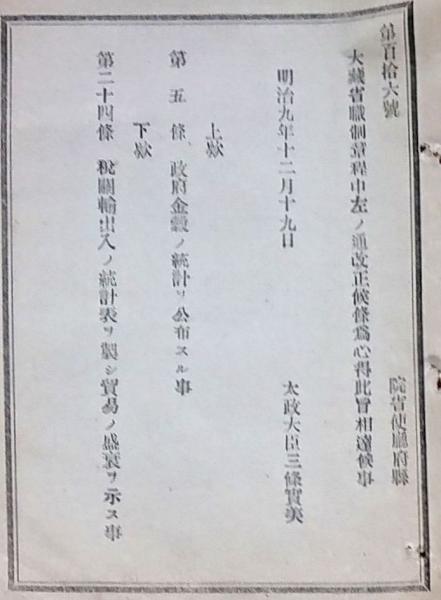 第百拾六號
院省使廳府縣
大藏省職制章程中左ノ通改正候條爲心得此旨相達候事
明治九年十二月十九日
太政大臣三條實美
上欵
第五條、政府金穀ノ統計ヲ公布スル事
下欵
第二十四條、税關輸出入ノ統計表ヲ製シ貿易ノ盛衰ヲ示ス事